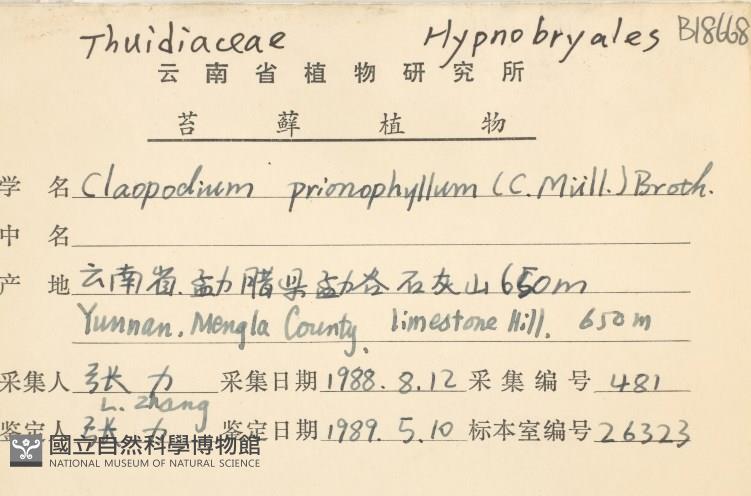 Thuidiaceae Hypnobryales B18668
云南省植物研究所
苔藓植物
学名 Claopodium prionophyllum (C. Müll.) Broth.
中名
产地 云南省.勐腊县勐仑石灰山 650m
Yunnan. Mengla County, limestone Hill, 650m
采集人 张力 采集日期 1988.8.12 采集编号 481
L. Zhang
鉴定人 张力 鉴定日期 1989.5.10 标本室编号 26323
國立自然科學博物館
NATIONAL MUSEUM OF NATURAL SCIENCE